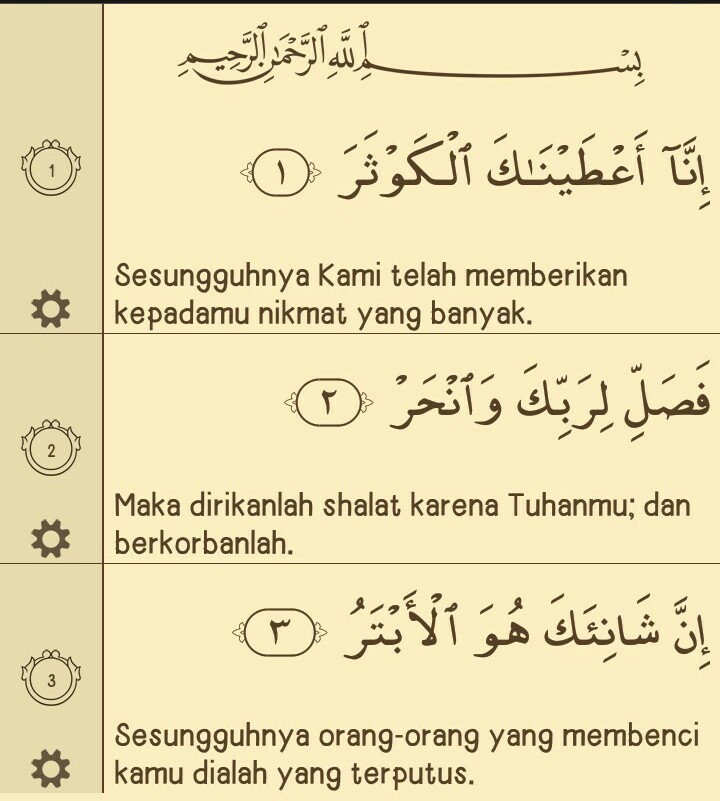 بِسْمِ ٱللَّهِ ٱلرَّحْمَٰنِ ٱلرَّحِيمِ
إِنَّآ أَعْطَيْنَـٰكَ ٱلْكَوْثَرَ ١
1
Sesungguhnya Kami telah memberikan
kepadamu nikmat yang banyak.
فَصَلِّ لِرَبِّكَ وَٱنْحَرْ ٢
2
Maka dirikanlah shalat karena Tuhanmu; dan
berkorbanlah.
إِنَّ شَانِئَكَ هُوَ ٱلْأَبْتَرُ ٣
3
Sesungguhnya orang-orang yang membenci
kamu dialah yang terputus.